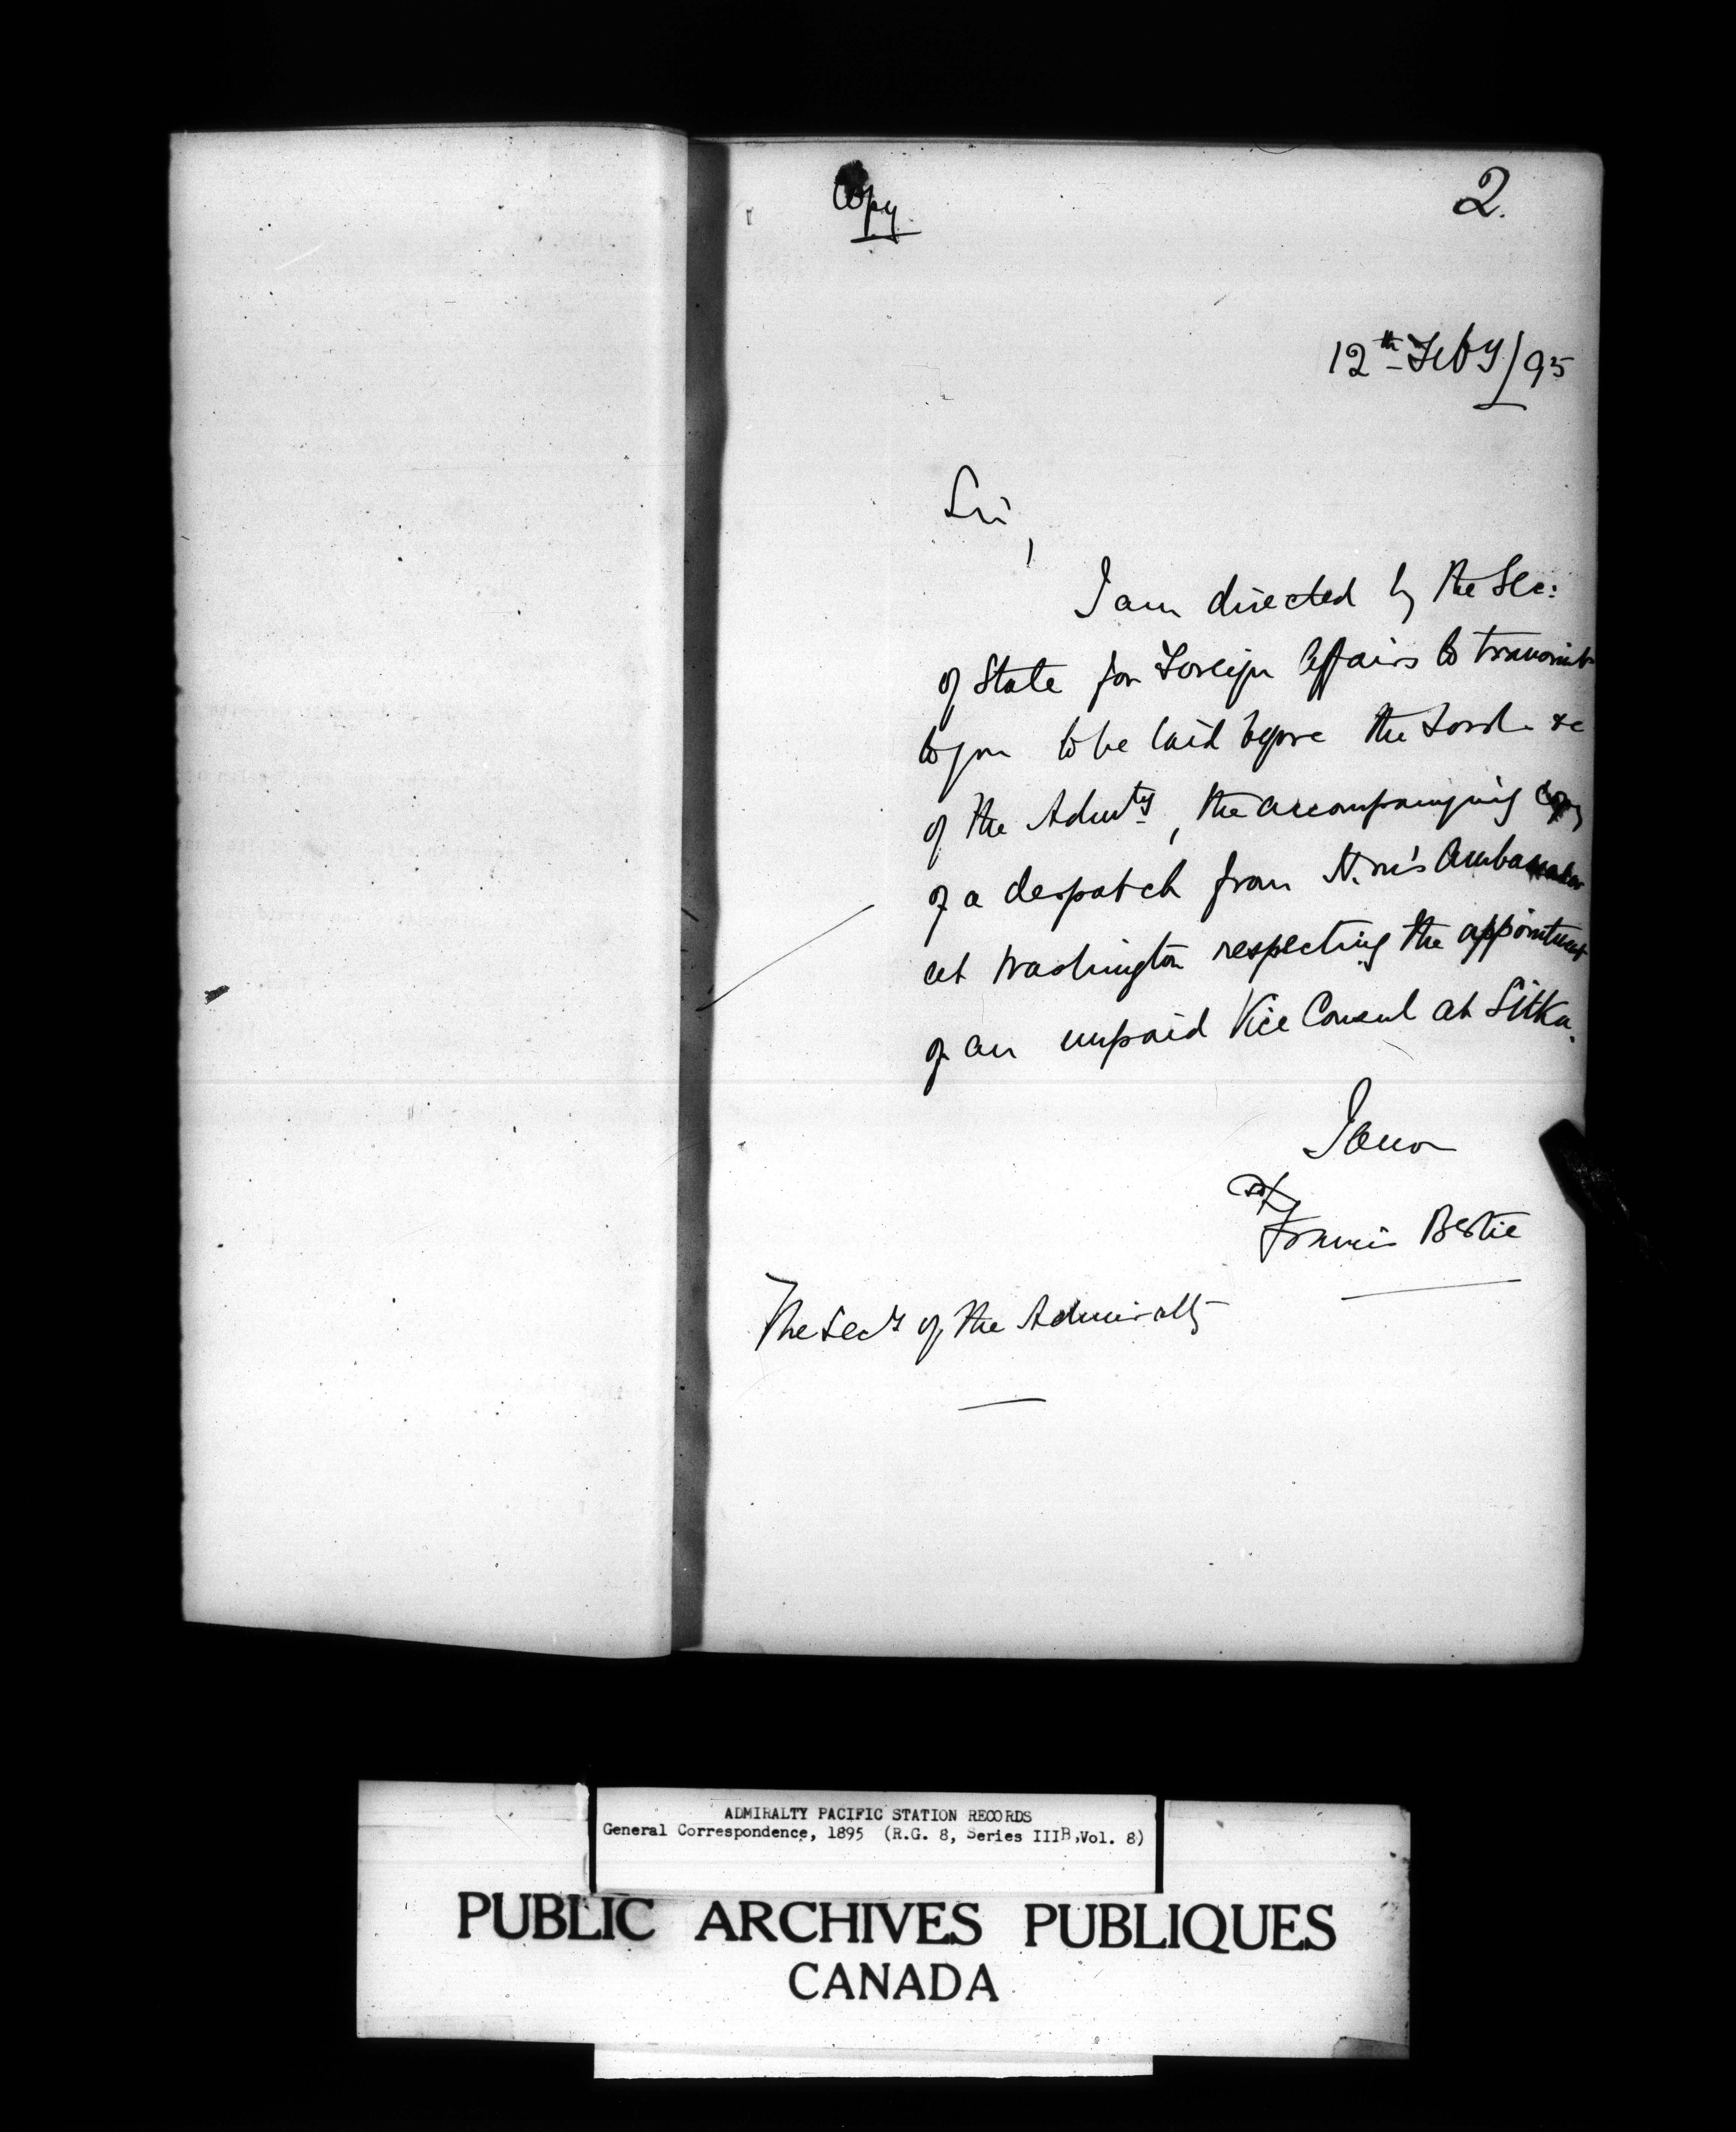 Copy
2.
12th Feby/95
Sir,
I am directed by the Sec:
of State for Foreign Affairs to transmit
to you to be laid before the Lords &c
of the Admty, the accompanying copy
of a despatch from H.M's Ambassador
at Washington respecting the appointment
of an unpaid Vice Consul at Sitka.
I am
Francis Bertie
The Secy of the Admiralty
ADMIRALTY PACIFIC STATION RECORDS
General Correspondence, 1895 (R.G. 8, Series IIIB, Vol. 8)
PUBLIC ARCHIVES PUBLIQUES
CANADA